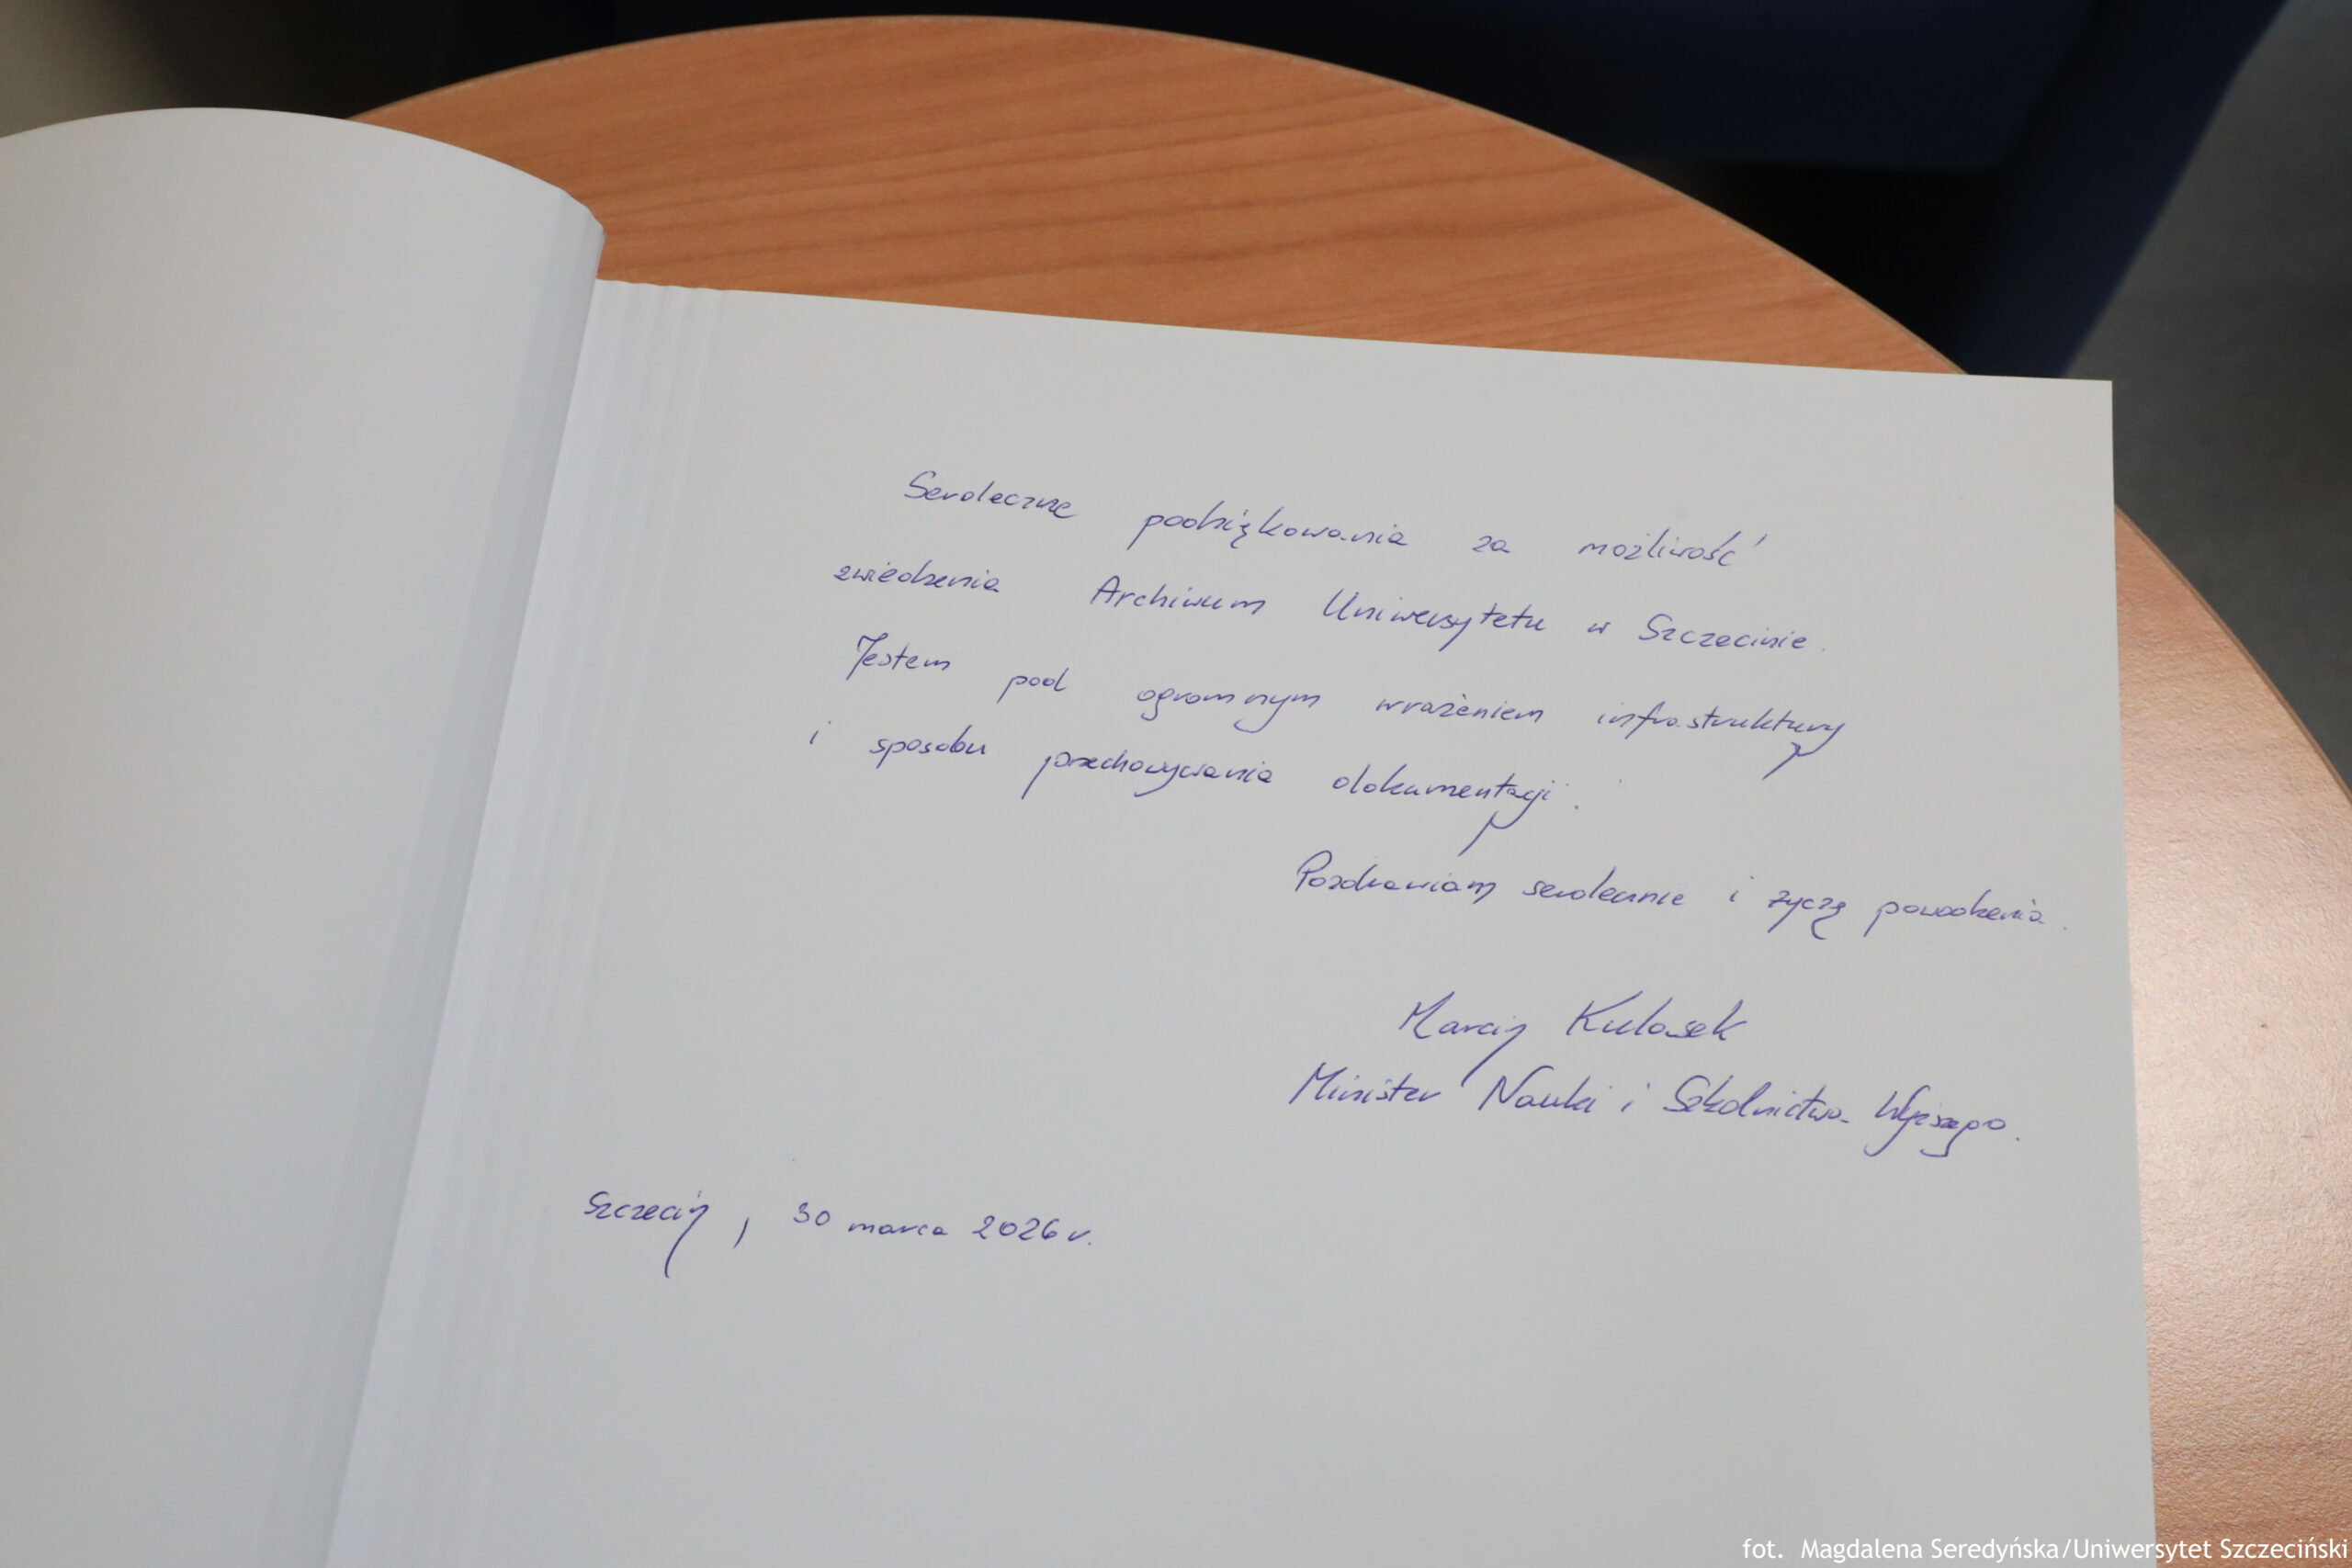 Serdeczne podziękowania za możliwość
zwiedzenia Archiwum Uniwersytetu w Szczecinie.
Jestem pod ogromnym wrażeniem infrastruktury
i sposobu przechowywania dokumentacji.
Pozdrawiam serdecznie i życzę powodzenia.
Marcin Kulasek
Minister Nauki i Szkolnictwa Wyższego.
Szczecin, 30 marca 2026 r.
fot. Magdalena Seredyńska/Uniwersytet Szczeciński